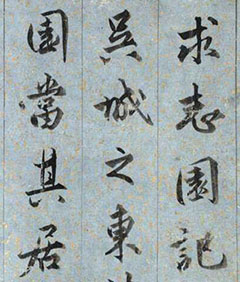 求志園記
吳城之東
園當其居